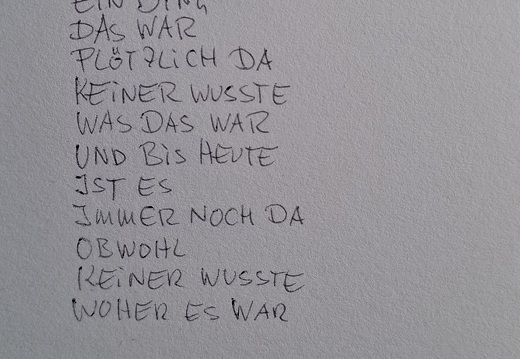 EIN DING
DAS WAR
PLÖTZLICH DA
KEINER WUSSTE
WAS DAS WAR
UND BIS HEUTE
IST ES
IMMER NOCH DA
OBWOHL
KEINER WUSSTE
WOHER ES WAR